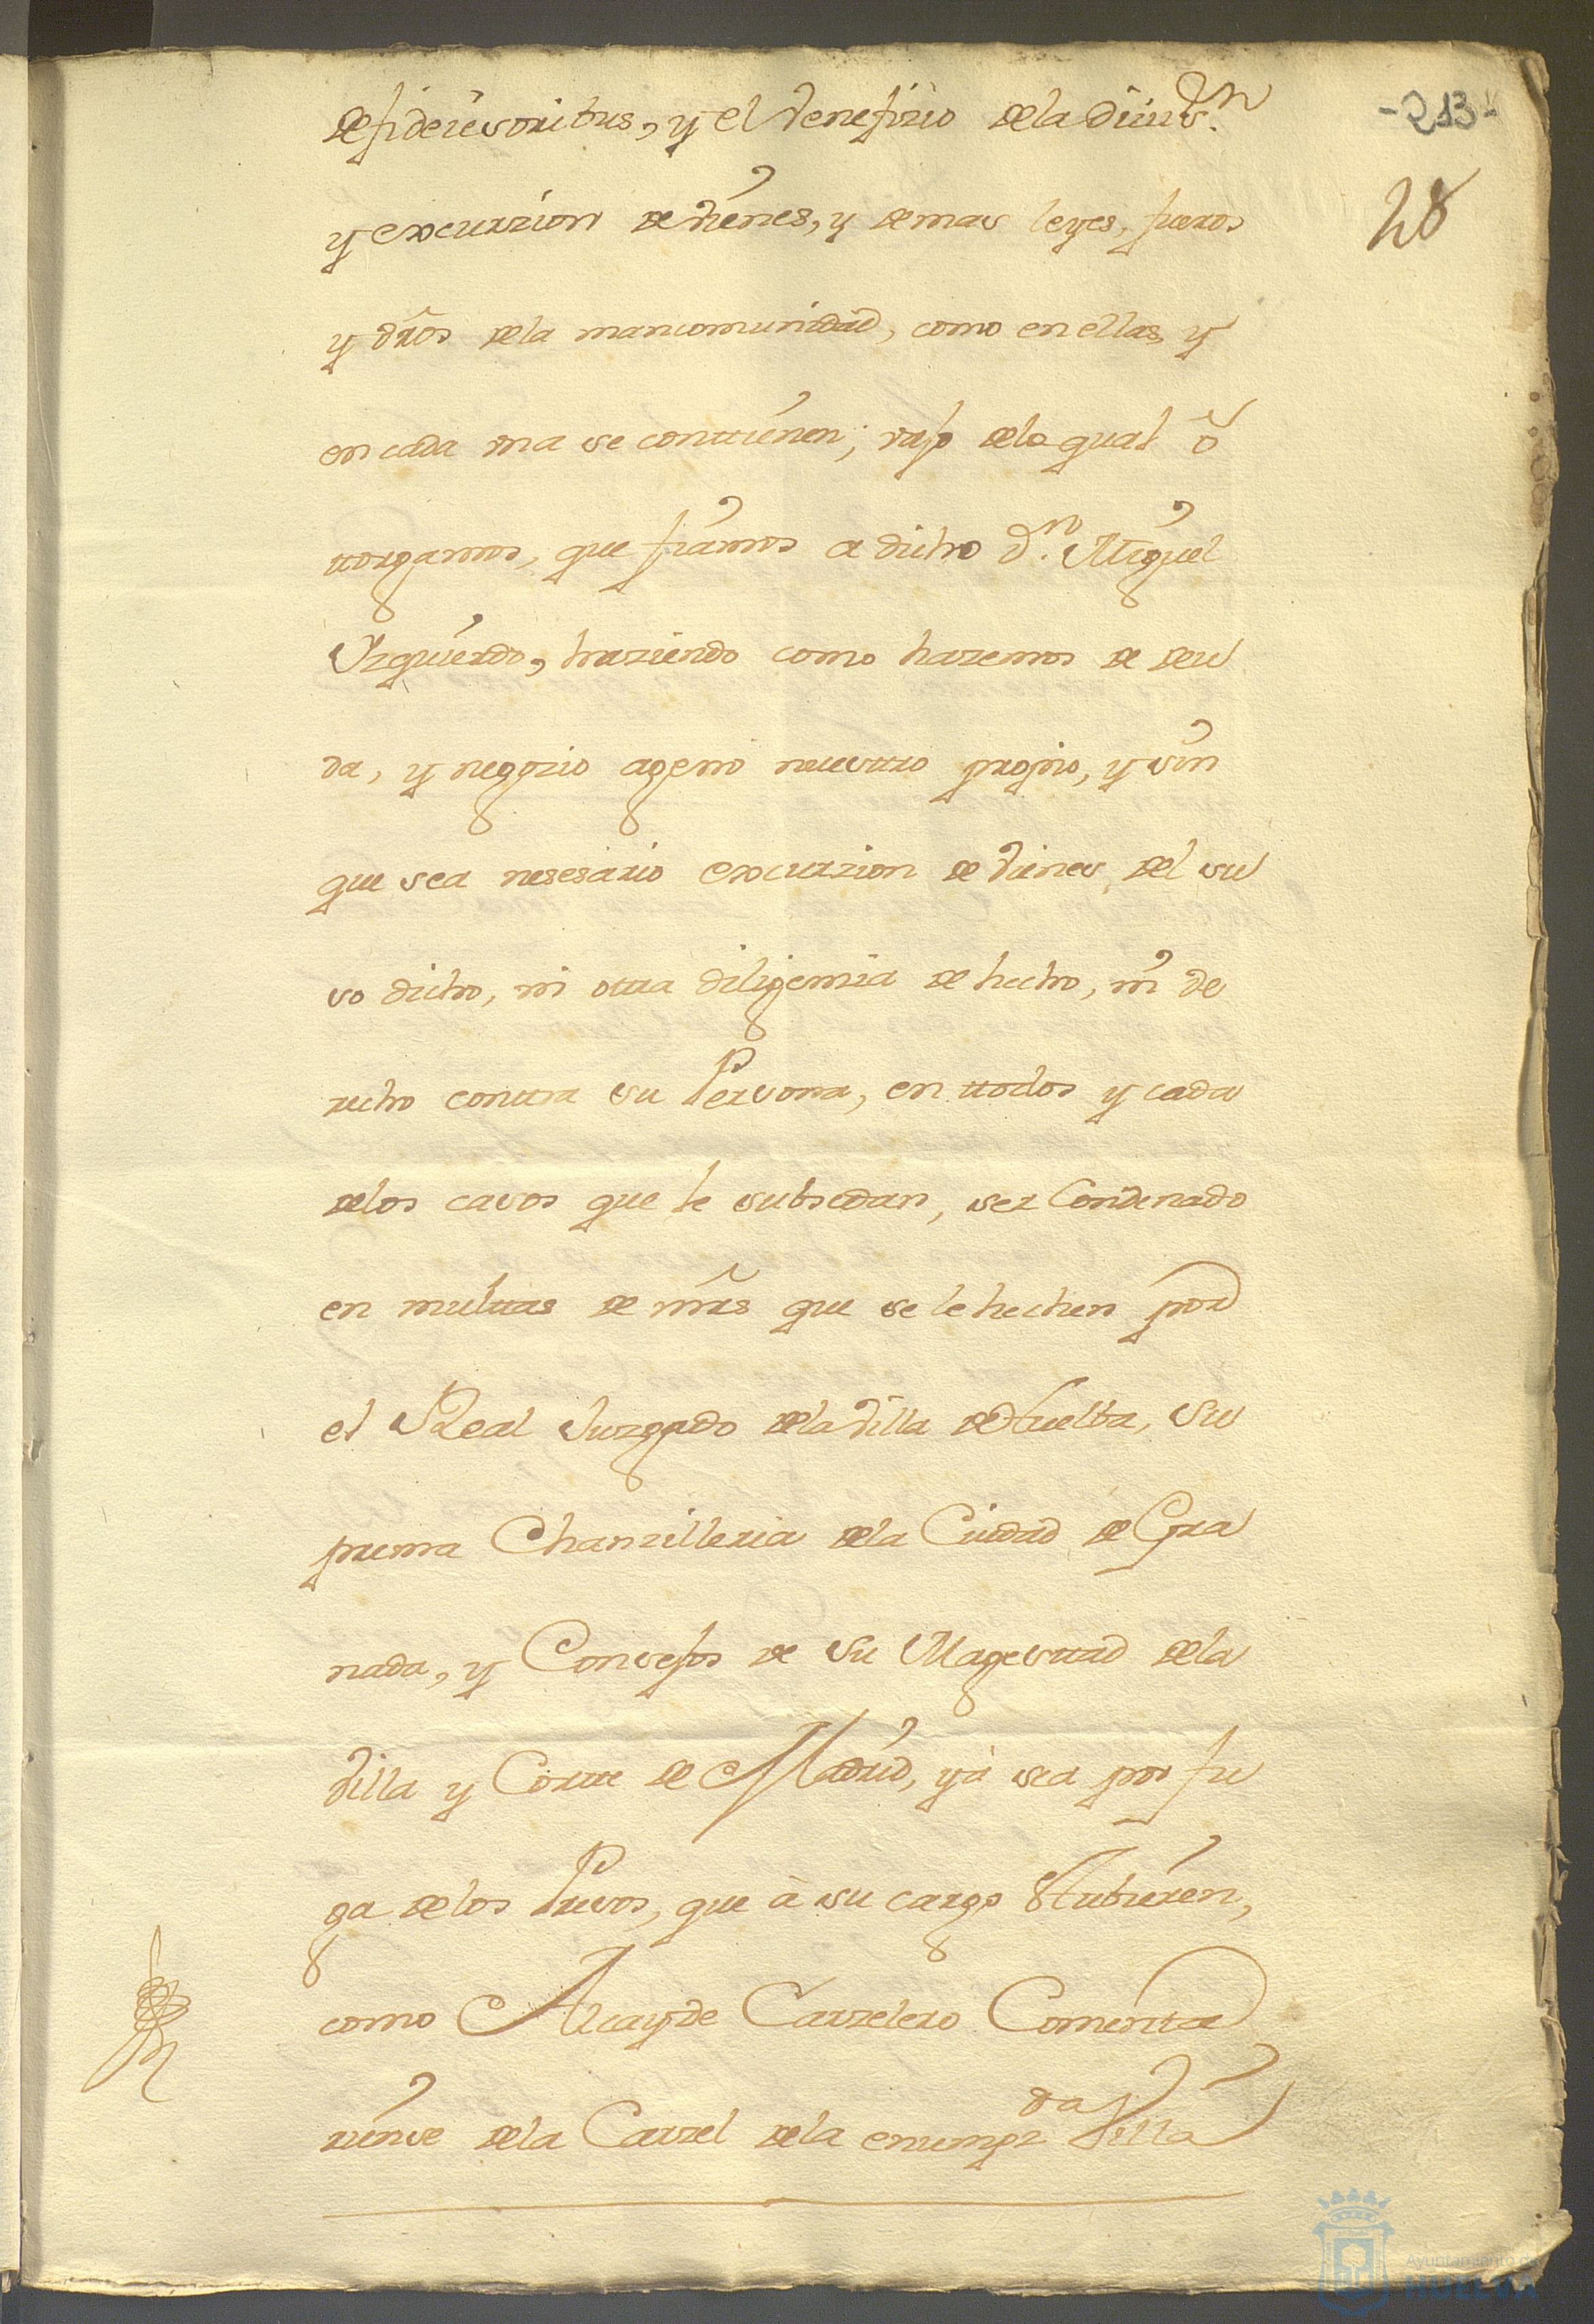 -213-
28
de fideiusoribus, y el venefizio dela divis.on
y excurzion de vienes, y demas leyes, fueros
y dros dela mancomunidad, como en ellas y
en cada una se conttienen; vajo delo qual o
ttorgamos, que fiamos a dicho Dn. Miguel
Yzquierdo, haziendo como hazemos de deu
da, y negozio ageno nuesttro propio, y sin
que sea nesesario excurzion de vienes del su
so dicho, ni otra diligenzia de hecho, ni de
recho conttra su Persona, en ttodos y cada
delos casos que le subsedan, ser Condenado
en multtas de mrs que se le hechen por
el Real Juzgado dela Villa de Huelba, Su
prema Chanzilleria dela Ciudad de Gra
nada, y Consejos de Su Magesttad dela
Villa y Cortte de Madrid, yà sea por fu
ga delos Presos, que à su cargo Hubieren,
como Alcayde Carzelero Comenta
riense dela Carzel dela enunpzda Villa
Ayuntamiento de
HUELVA